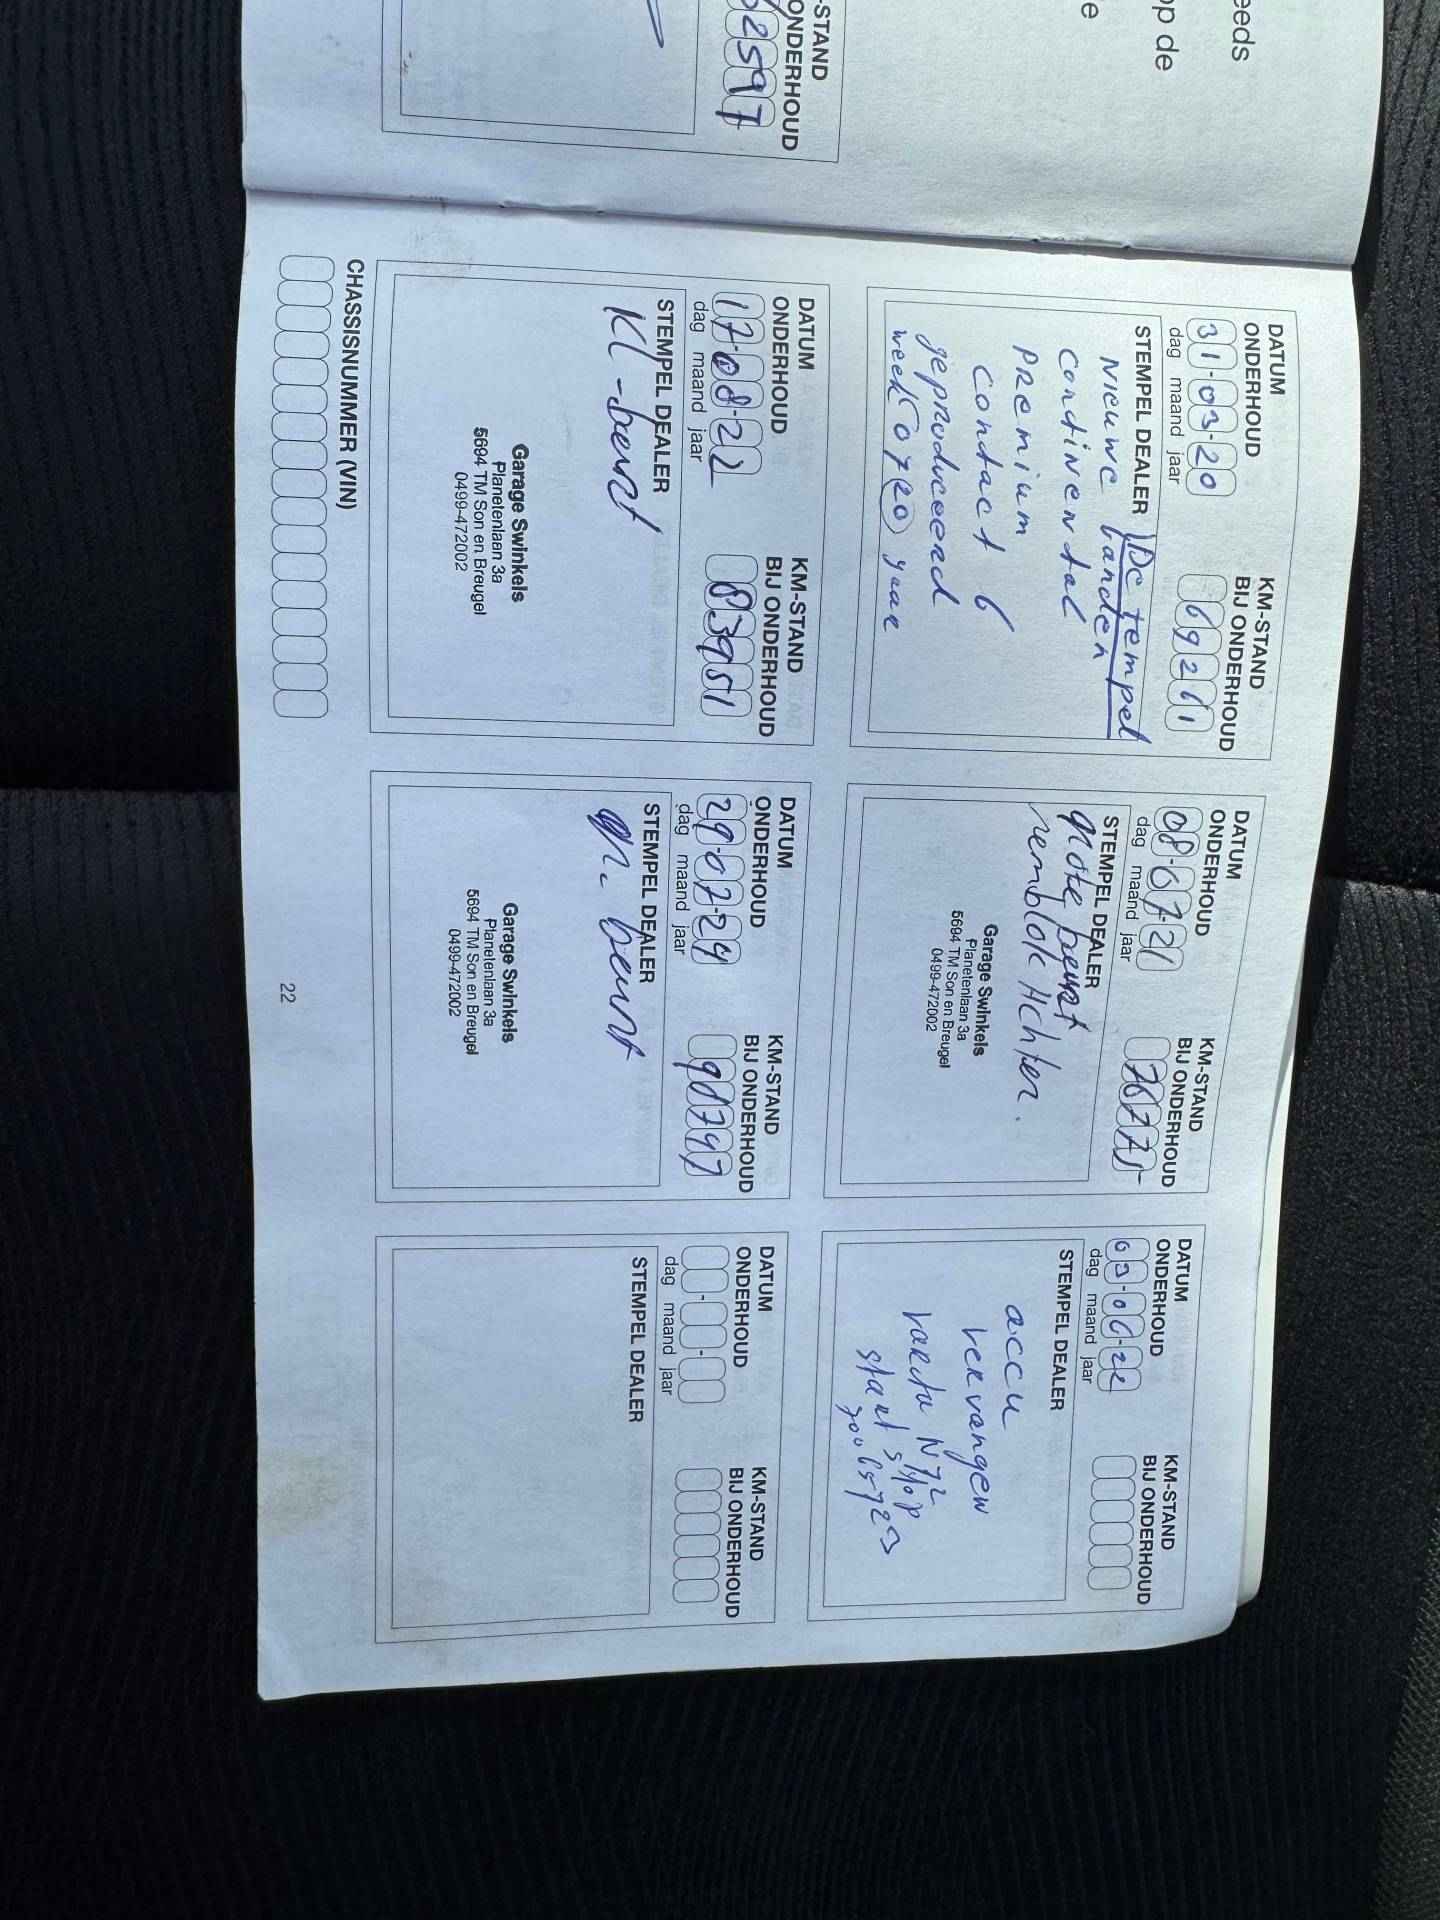 eeds
op de
e
-STAND
ONDERHOUD
2597
DATUM
ONDERHOUD
31-03-20
dag maand jaar
KM-STAND
BIJ ONDERHOUD
69261
STEMPEL DEALER
De tempel
Nieuwe banden
Continental
Premium
Contact 6
geproduceerd
week 0720 yaar
DATUM
ONDERHOUD
08-07-21
dag maand jaar
KM-STAND
BIJ ONDERHOUD
76775
STEMPEL DEALER
grote beurt
remblok Achter.
Garage Swinkels
Planetenlaan 3a
5694 TM Son en Breugel
0499-472002
DATUM
ONDERHOUD
03-06-22
dag maand jaar
KM-STAND
BIJ ONDERHOUD
STEMPEL DEALER
accu
vervangen
varta N72
start stop
DATUM
ONDERHOUD
17-08-22
dag maand jaar
KM-STAND
BIJ ONDERHOUD
83951
STEMPEL DEALER
Kl-beurt
Garage Swinkels
Planetenlaan 3a
5694 TM Son en Breugel
0499-472002
DATUM
ONDERHOUD
29-07-24
dag maand jaar
KM-STAND
BIJ ONDERHOUD
98747
STEMPEL DEALER
gr. beurt
Garage Swinkels
Planetenlaan 3a
5694 TM Son en Breugel
0499-472002
DATUM
ONDERHOUD
dag maand jaar
KM-STAND
BIJ ONDERHOUD
STEMPEL DEALER
CHASSISNUMMER (VIN)
22